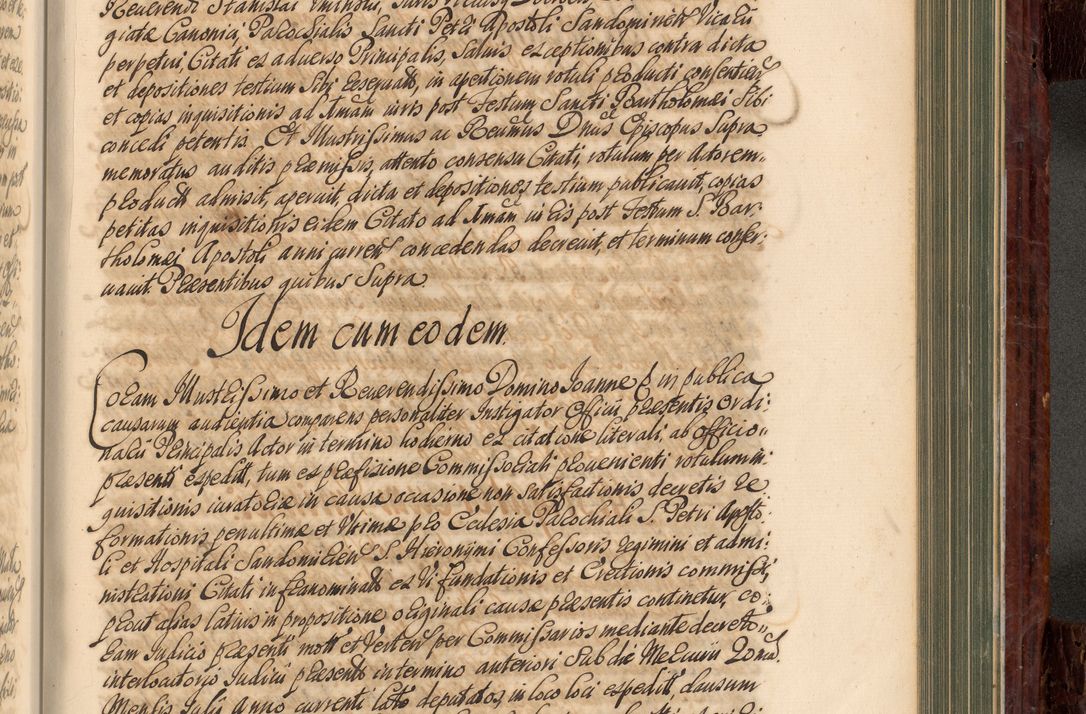 Reverendo Stanislai
giatæ Canonici, Parochialis Sancti Petri Apostoli Sandomirien Vicarii
perpetui, Citati ex adverso Principalis, Salvis exceptionibus contra dicta
et depositiones testium Sibi reservatis, in apertionem rotuli producti consentien
et copias inquisitionis ad post Festum Sancti Bartholomæi Sibi
concedi petentis. Et Illustrissimus ac Reverendissimus Dnus Episcopus Supra
memoratus auditis præmissis, attento consensu Citati, rotulum per Actorem
product admisit, aperuit, dicta et depositiones testium publicavit, copias
petitas inquisitionis eidem Citato ad post Festum S. Bar-
tholomæi Apostoli anni curren concedendas decrevit, et terminum conser-
vavit. Præsentibus quibus Supra.
Idem cum eodem.
Coram Illustrissimo et Reverendissimo Domino Joanne P. in publica
causarum audientia comparens personaliter Instigator Officii præsentis Ordi-
narii Principalis Actor in termino hodierno ex citatione literali, ab officio
præsenti expedit, tum ex præfixione Commissoriali provenienti rotulum in-
quisitionis juratoriæ in causa occasione non Satisfactionis decretis Re
formationis penultimæ et Ultimæ pro Ecclesia Parochiali S. Petri Aposto-
li et Hospitali Sandomirien S. Hieronymi Confessoris regimini et admi-
nistrationi Citati infranominati ex Vi Fundationis et Erectionis commissi,
prout alias latius in propositione originali causæ præsentis continetur, co-
ram Judicio præsenti mott et Verten per Commissarios mediante decreto
interlocutorio Judicii præsentis in termino anteriori Sub die Mercurii
Mensis Julii Anno currenti lato deputatos, in loco loci expedit, clausum